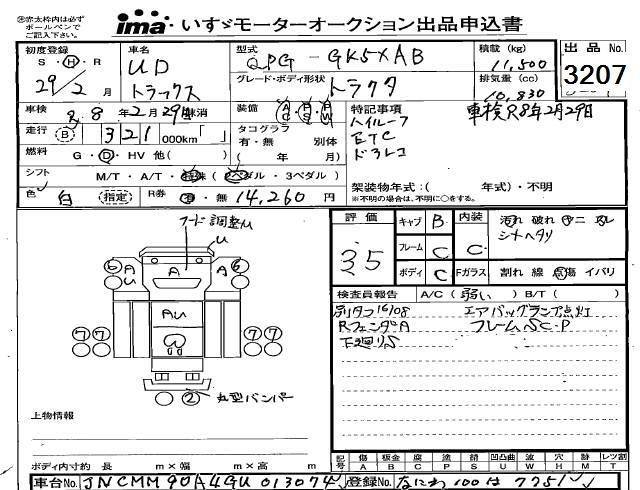 ㊟赤太枠内は必ず
ボールペンで
ご記入下さい。
ima いすゞモーターオークション出品申込書
初度登録
S・Ⓗ・R
29年2月
車名
UD
トラックス
型式
QPG - GK5XAB
グレード・ボディ形状
トラクタ
積載 (kg)
11,500
排気量 (cc)
10,830
出品 No.
3207
車検 R8年2月29日
走行 Ⓑ 321 000km
燃料 G・Ⓓ・HV 他( )
装備 AC PS AW
タコグラフ
有・無 別体
( 年 月)
特記事項 車検R8年2月29日
ハイルーフ
ETC
ドラレコ
シフト M/T・A/T・特殊 (2ペダル・3ペダル)
架装物年式:( 年式)・不明
※不明の場合は、不明に○をする。
色 白 (指定) R券 有・無 14,260円
評価
35
キャブ B
フレーム C
ボディ C
内装 C
Fガラス
汚れ 破れ ヤニ
シートヘタリ
割れ 線 点傷 イバリ
フード調整ム
U
6 A A A 6
U
Au
7 7 7 7
2 丸型バンパー
検査員報告 A/C(弱い) B/T( )
別タコ16/08 エアバッグランプ点灯
RフェンダA フレームSC.P
下廻りS
上物情報
ボディ内寸約 長 m×幅 m×高 m
記号 傷 板金 座 塗 錆 凹凸曲 波 穴 跡 レツ割
A B C P S U W H M T
車台No. JNCMM90A4GU013074
登録No. なにわ 100 は 7751